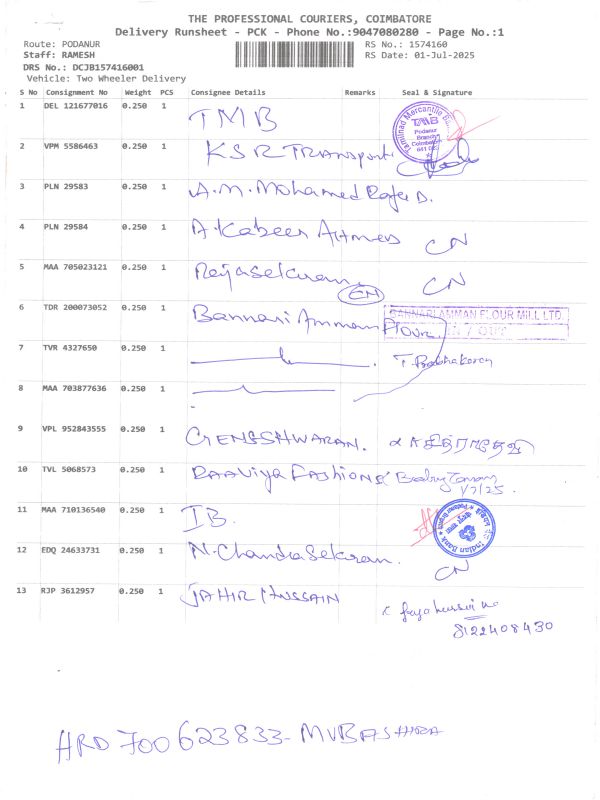 THE PROFESSIONAL COURIERS, COIMBATORE
Delivery Runsheet - PCK - Phone No.:9047080280 - Page No.:1
Route: PODANUR RS No.: 1574160
Staff: RAMESH RS Date: 01-Jul-2025
DRS No.: DCJB157416001
Vehicle: Two Wheeler Delivery
S No Consignment No Weight PCS Consignee Details Remarks Seal & Signature
1 DEL 121677016 0.250 1 TMB
Tamilnad Mercantile TMB Podanur Branch Coimbatore
2 VPM 5586463 0.250 1 KSR TRANSport
3 PLN 29583 0.250 1 A.M. Mohamed
4 PLN 29584 0.250 1 A. Kabeer Ahmed CN
5 MAA 705023121 0.250 1 Rejasekaran CN
CN
6 TDR 200073052 0.250 1 Bannari Amman Flour
BANNARI AMMAN FLOUR MILL LTD.
7 TVR 4327650 0.250 1
8 MAA 703877636 0.250 1
9 VPL 952843555 0.250 1 GENGSHWARAN.
10 TVL 5068573 0.250 1 RAAViya FAShions
1/7/25.
11 MAA 710136540 0.250 1 IB.
Indian Bank
12 EDQ 24633731 0.250 1 N. ChandraSekaran. CN
13 RJP 3612957 0.250 1 JAHIR HUSSAIN
8122408430
HRD 700623833- MVBASHIRA